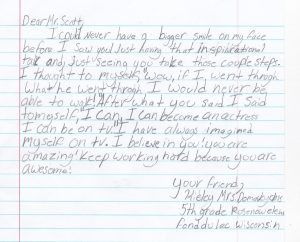 Dear Mr. Scott,
I could Never have a bigger smile on my face
before I saw you! Just having that inspirational
talk and, just seeing you take those couple steps.
I thought to myself, wow, if I went through
what he went through I would never be
able to walk! After what you said I said
to myself, I can, I can become an actress
I can be on tv. I have always imagined
myself on tv. I believe in you! you are
amazing! Keep working hard because you are
awesome!
your friend,
Mrs.
5th grade
Fond du Lac Wisconsin